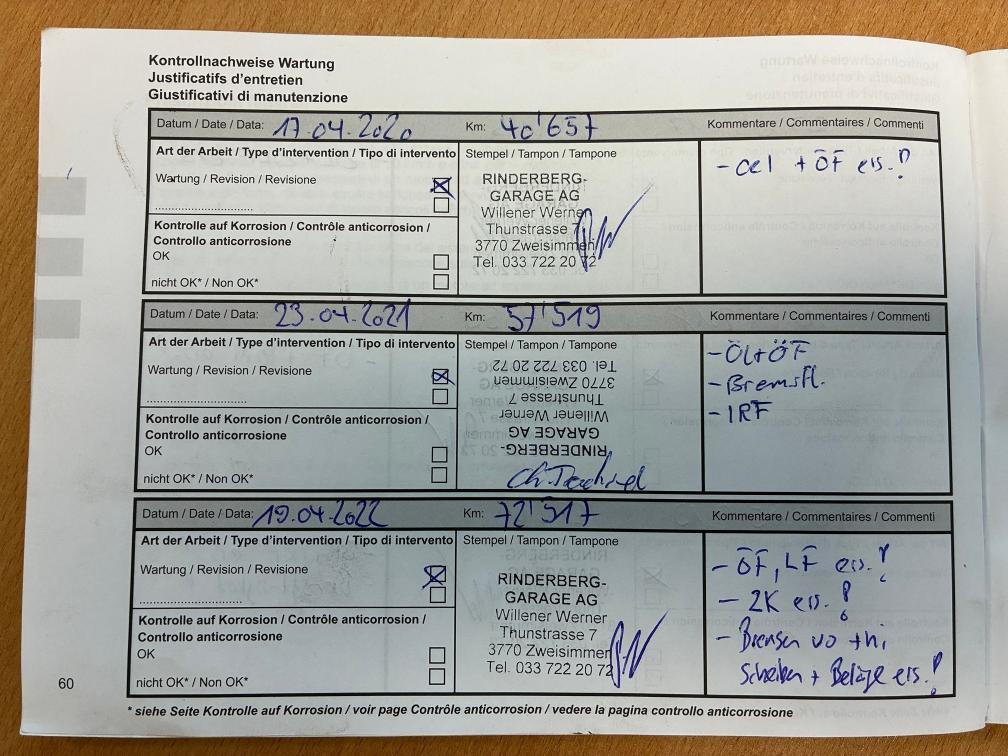 Kontrollnachweise Wartung
Justificatifs d'entretien
Giustificativi di manutenzione
Datum / Date / Data: 17.04.2020 Km: 40'657 Kommentare / Commentaires / Commenti
Art der Arbeit / Type d'intervention / Tipo di intervento Stempel / Tampon / Tampone
- Oel + ÖF ers.!
Wartung / Revision / Revisione
RINDERBERG-
GARAGE AG
Willener Werner
Thunstrasse 7
3770 Zweisimmen
Tel. 033 722 20 72
Kontrolle auf Korrosion / Contrôle anticorrosion /
Controllo anticorrosione
OK
nicht OK* / Non OK*
Datum / Date / Data: 23.04.2021 Km: 57'519 Kommentare / Commentaires / Commenti
Art der Arbeit / Type d'intervention / Tipo di intervento Stempel / Tampon / Tampone
- Öl + ÖF
- Bremsfl.
- IRF
Wartung / Revision / Revisione
RINDERBERG-
GARAGE AG
Willener Werner
Thunstrasse 7
3770 Zweisimmen
Tel. 033 722 20 72
Kontrolle auf Korrosion / Contrôle anticorrosion /
Controllo anticorrosione
OK
nicht OK* / Non OK*
Datum / Date / Data: 19.04.2022 Km: 72'517 Kommentare / Commentaires / Commenti
Art der Arbeit / Type d'intervention / Tipo di intervento Stempel / Tampon / Tampone
- ÖF, LF ers.!
- ZK ers.!
- Bremsen vo + hi
Scheiben + Beläge ers.!
Wartung / Revision / Revisione
RINDERBERG-
GARAGE AG
Willener Werner
Thunstrasse 7
3770 Zweisimmen
Tel. 033 722 20 72
Kontrolle auf Korrosion / Contrôle anticorrosion /
Controllo anticorrosione
OK
nicht OK* / Non OK*
60
* siehe Seite Kontrolle auf Korrosion / voir page Contrôle anticorrosion / vedere la pagina controllo anticorrosione